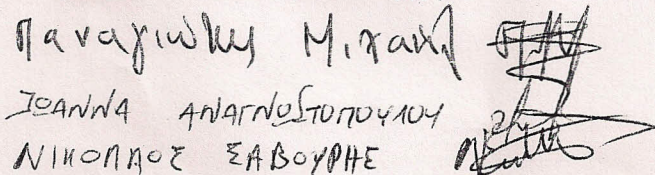 Παναγιώτης Μιχαήλ
ΙΩΑΝΝΑ ΑΝΑΓΝΩΣΤΟΠΟΥΛΟΥ
ΝΙΚΟΛΑΟΣ ΣΑΒΟΥΡΗΣ